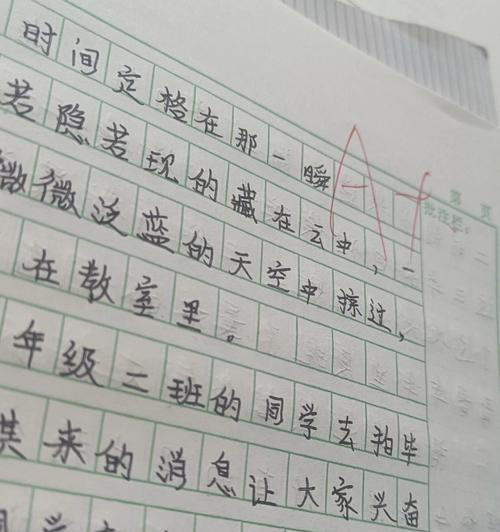 时间定格在那一瞬
A+
若隐若现的藏在云中，一
微微泛蓝的天空中掠过，
在教室里。
年级二班的同学去拍毕
其来的消息让大家兴奋
第 页